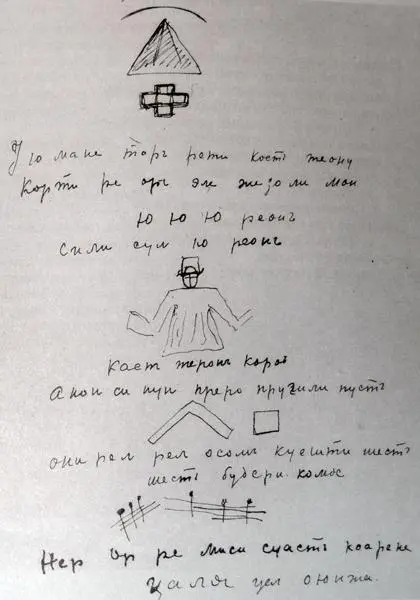 Ую мане торг рети кость жеону
Корти ре орг эк жедоли мон
Ю Ю Ю реонг
Сили сул ю реонг
Каст жеронг корот
Анон си пуп преро пружили пусть
они рел рел осомг куешти шесть
шесть будери. комос
Нер ор ре миси счасть коарене
цалдг уел оюнжи.